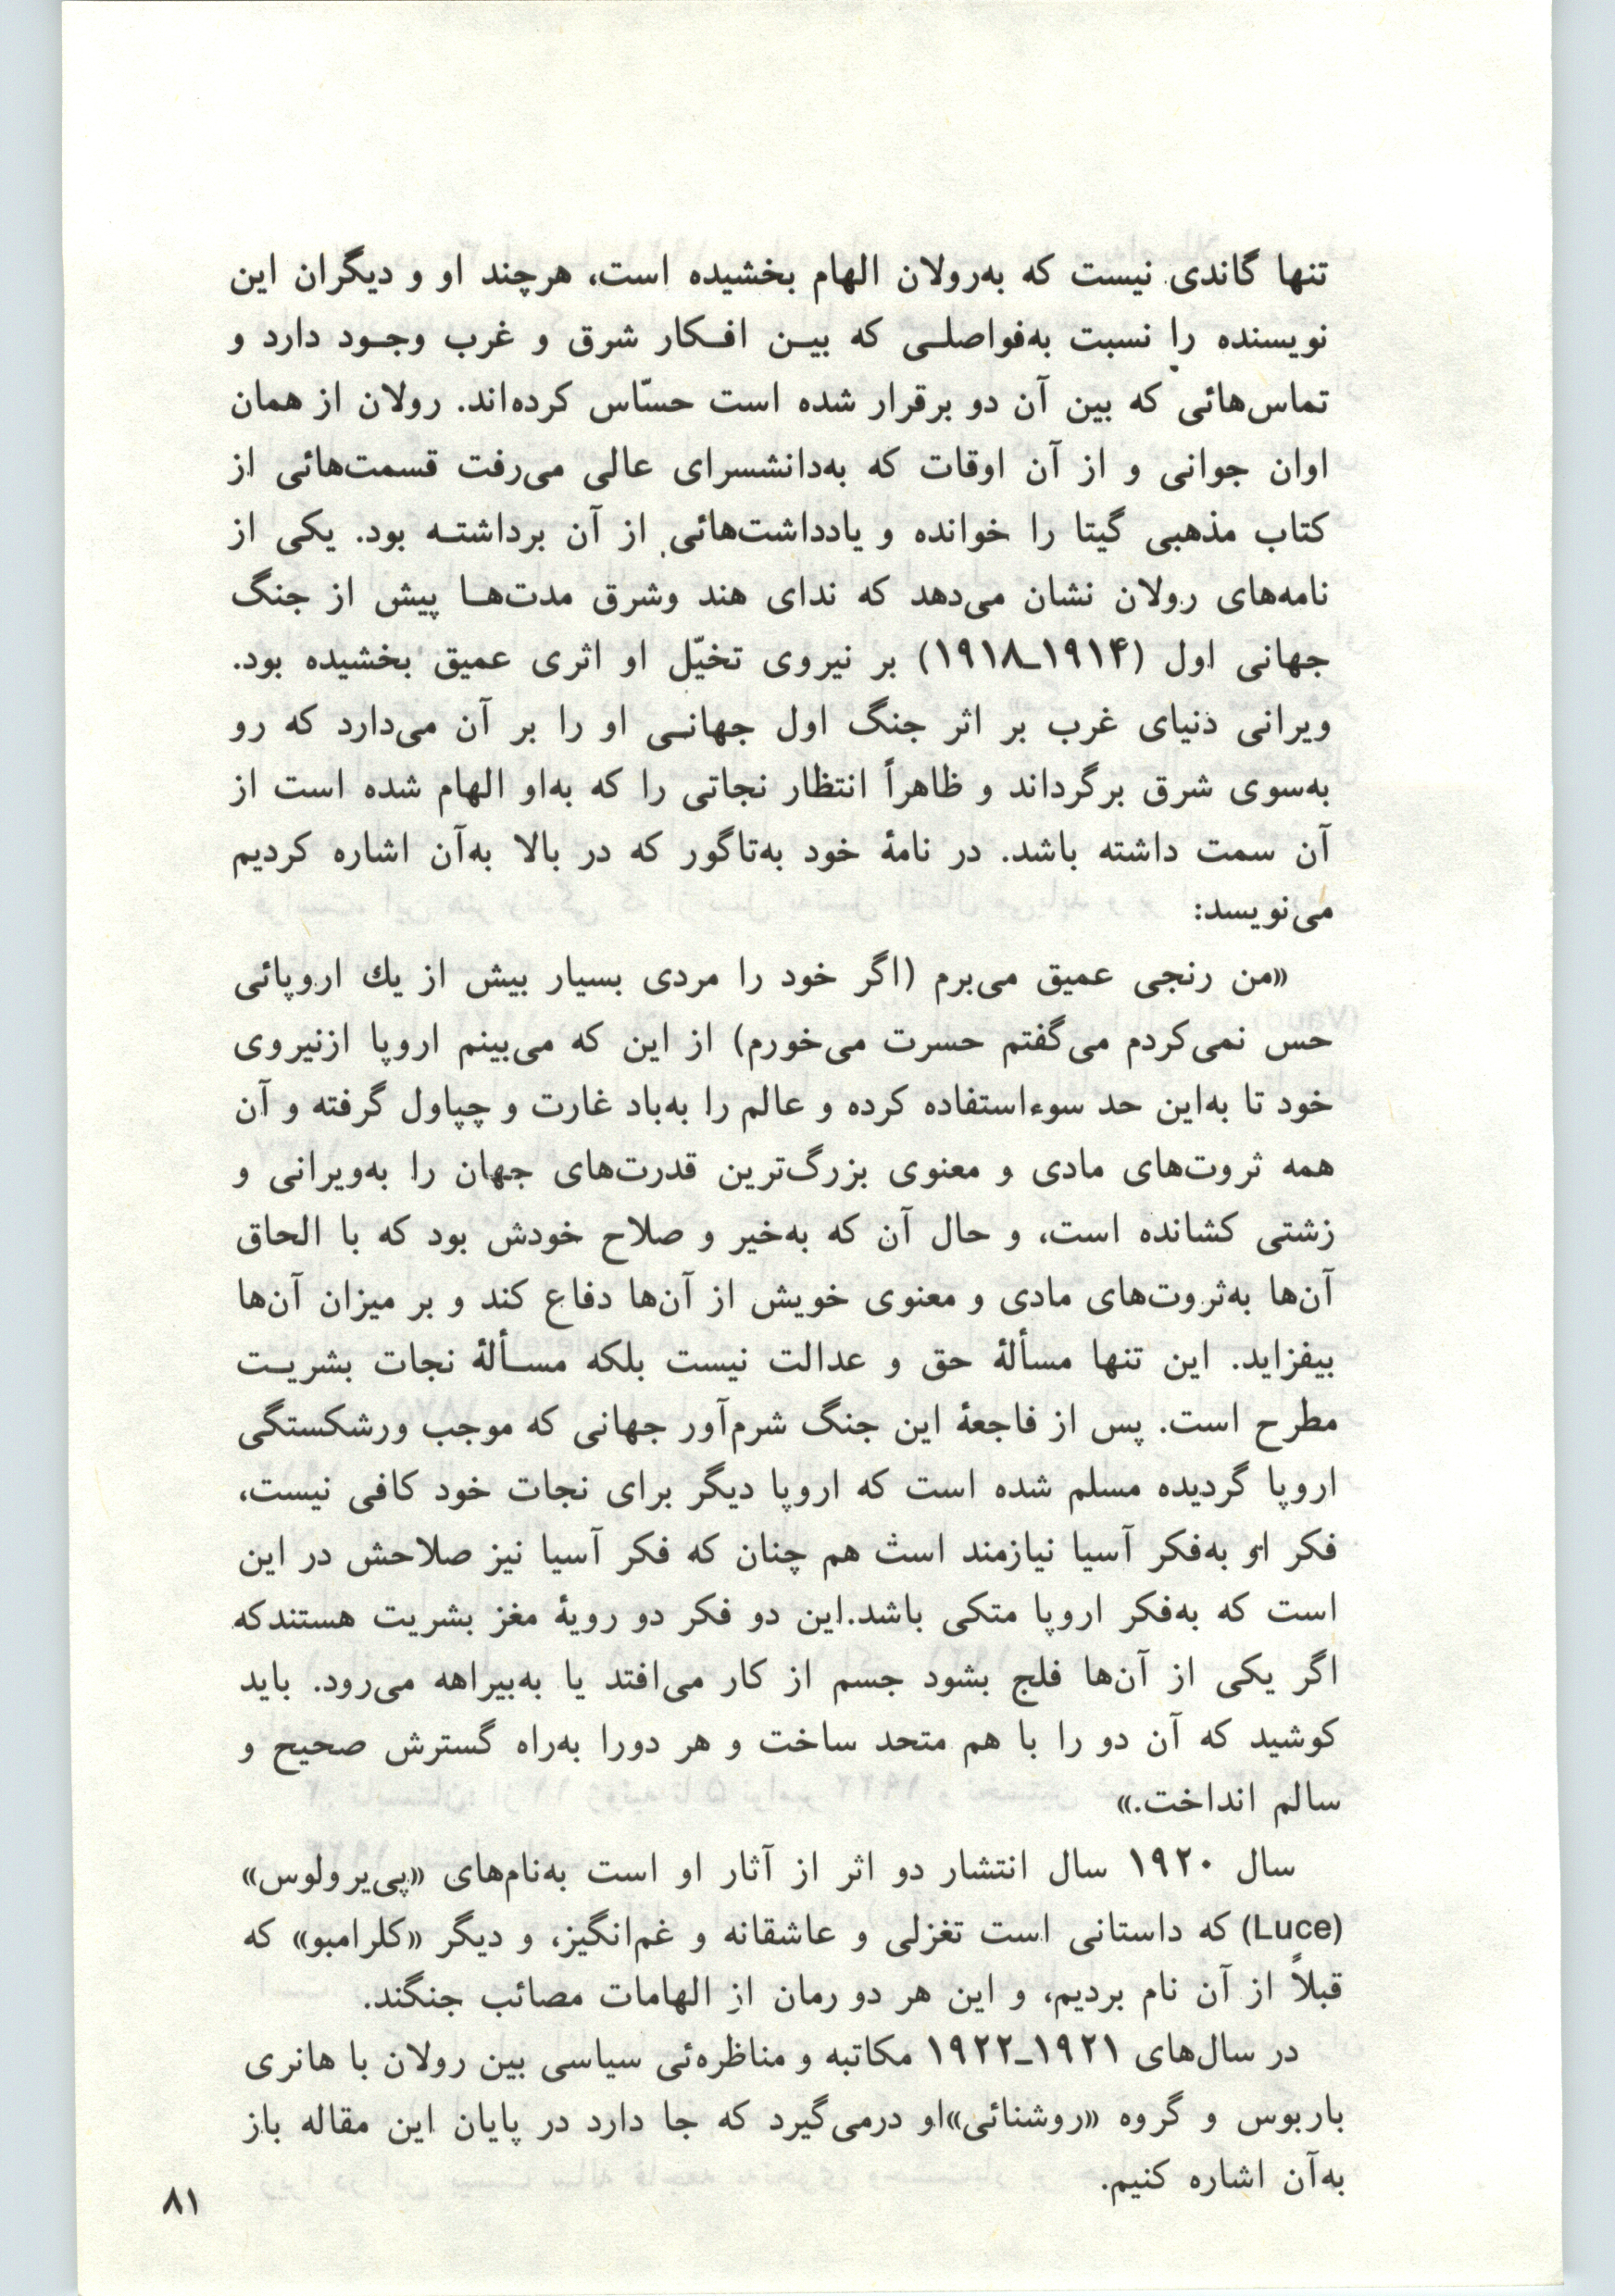 تنها گاندی نیست که به‌رولان الهام بخشیده است، هرچند او و دیگران این
نویسنده را نسبت به‌فواصلـی که بیـن افـکار شرق و غرب وجـود دارد و
تماس‌هائی که بین آن دو برقرار شده است حسّاس کرده‌اند. رولان از همان
اوان جوانی و از آن اوقات که به‌دانشسرای عالی می‌رفت قسمت‌هائی از
کتاب مذهبی گیتا را خوانده و یادداشت‌هائی از آن برداشتـه بود. یکی از
نامه‌های رولان نشان می‌دهد که ندای هند وشرق مدت‌هـا پیش از جنگ
جهانی اول (۱۹۱۴ـ۱۹۱۸) بر نیروی تخیّل او اثری عمیق بخشیده بود.
ویرانی دنیای غرب بر اثر جنگ اول جهانـی او را بر آن می‌دارد که رو
به‌سوی شرق برگرداند و ظاهراً انتظار نجاتی را که به‌او الهام شده است از
آن سمت داشته باشد. در نامهٔ خود به‌تاگور که در بالا به‌آن اشاره کردیم
می‌نویسد:
«من رنجی عمیق می‌برم (اگر خود را مردی بسیار بیش از یك اروپائی
حس نمی‌کردم می‌گفتم حسرت می‌خورم) از این که می‌بینم اروپا ازنیروی
خود تا به‌این حد سوءاستفاده کرده و عالم را به‌باد غارت و چپاول گرفته و آن
همه ثروت‌های مادی و معنوی بزرگ‌ترین قدرت‌های جهان را به‌ویرانی و
زشتی کشانده است، و حال آن که به‌خیر و صلاح خودش بود که با الحاق
آن‌ها به‌ثروت‌های مادی و معنوی خویش از آن‌ها دفاع کند و بر میزان آن‌ها
بیفزاید. این تنها مسألهٔ حق و عدالت نیست بلکه مسـألهٔ نجات بشریـت
مطرح است. پس از فاجعهٔ این جنگ شرم‌آور جهانی که موجب ورشکستگی
اروپا گردیده مسلم شده است که اروپا دیگر برای نجات خود کافی نیست،
فکر او به‌فکر آسیا نیازمند است هم چنان که فکر آسیا نیز صلاحش در این
است که به‌فکر اروپا متکی باشد.این دو فکر دو رویهٔ مغز بشریت هستندکه
اگر یکی از آن‌ها فلج بشود جسم از کار می‌افتد یا به‌بیراهه می‌رود. باید
کوشید که آن دو را با هم متحد ساخت و هر دورا به‌راه گسترش صحیح و
سالم انداخت.»
سال ۱۹۲۰ سال انتشار دو اثر از آثار او است به‌نام‌های «پی‌یرولوس»
(Luce) که داستانی است تغزلی و عاشقانه و غم‌انگیز، و دیگر «کلرامبو» که
قبلاً از آن نام بردیم، و این هر دو رمان از الهامات مصائب جنگند.
در سال‌های ۱۹۲۱ـ۱۹۲۲ مکاتبه و مناظره‌ئی سیاسی بین رولان با هانری
باربوس و گروه «روشنائی»او درمی‌گیرد که جا دارد در پایان این مقاله باز
به‌آن اشاره کنیم.
۸۱